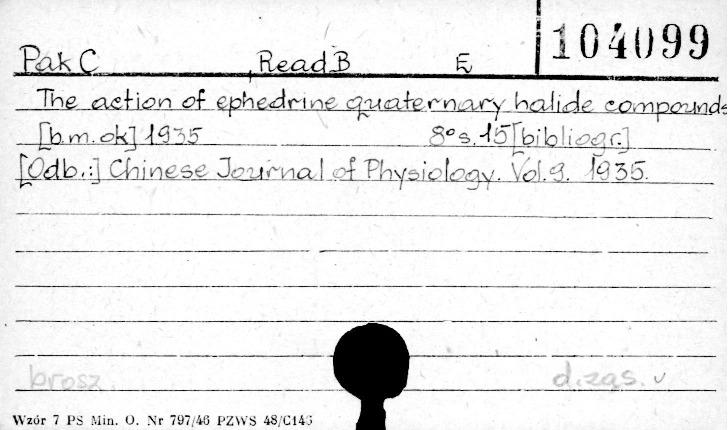 104099
Pak C , Read B E
The action of ephedrine quaternary halide compounds
[b.m.ok] 1935 8° s. 15 [bibliogr.]
[Odb.:] Chinese Journal of Physiology. Vol. 9. 1935.
brosz. d.zas. v
Wzór 7 PS Min. O. Nr 797/46 PZWS 48/C146